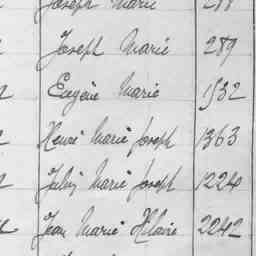 Joseph Marie 288
Joseph Marie 289
Eugène Marie 1532
Henri Marie Joseph 1363
Marie Joseph 1224
Jean Marie Hilaire 2242